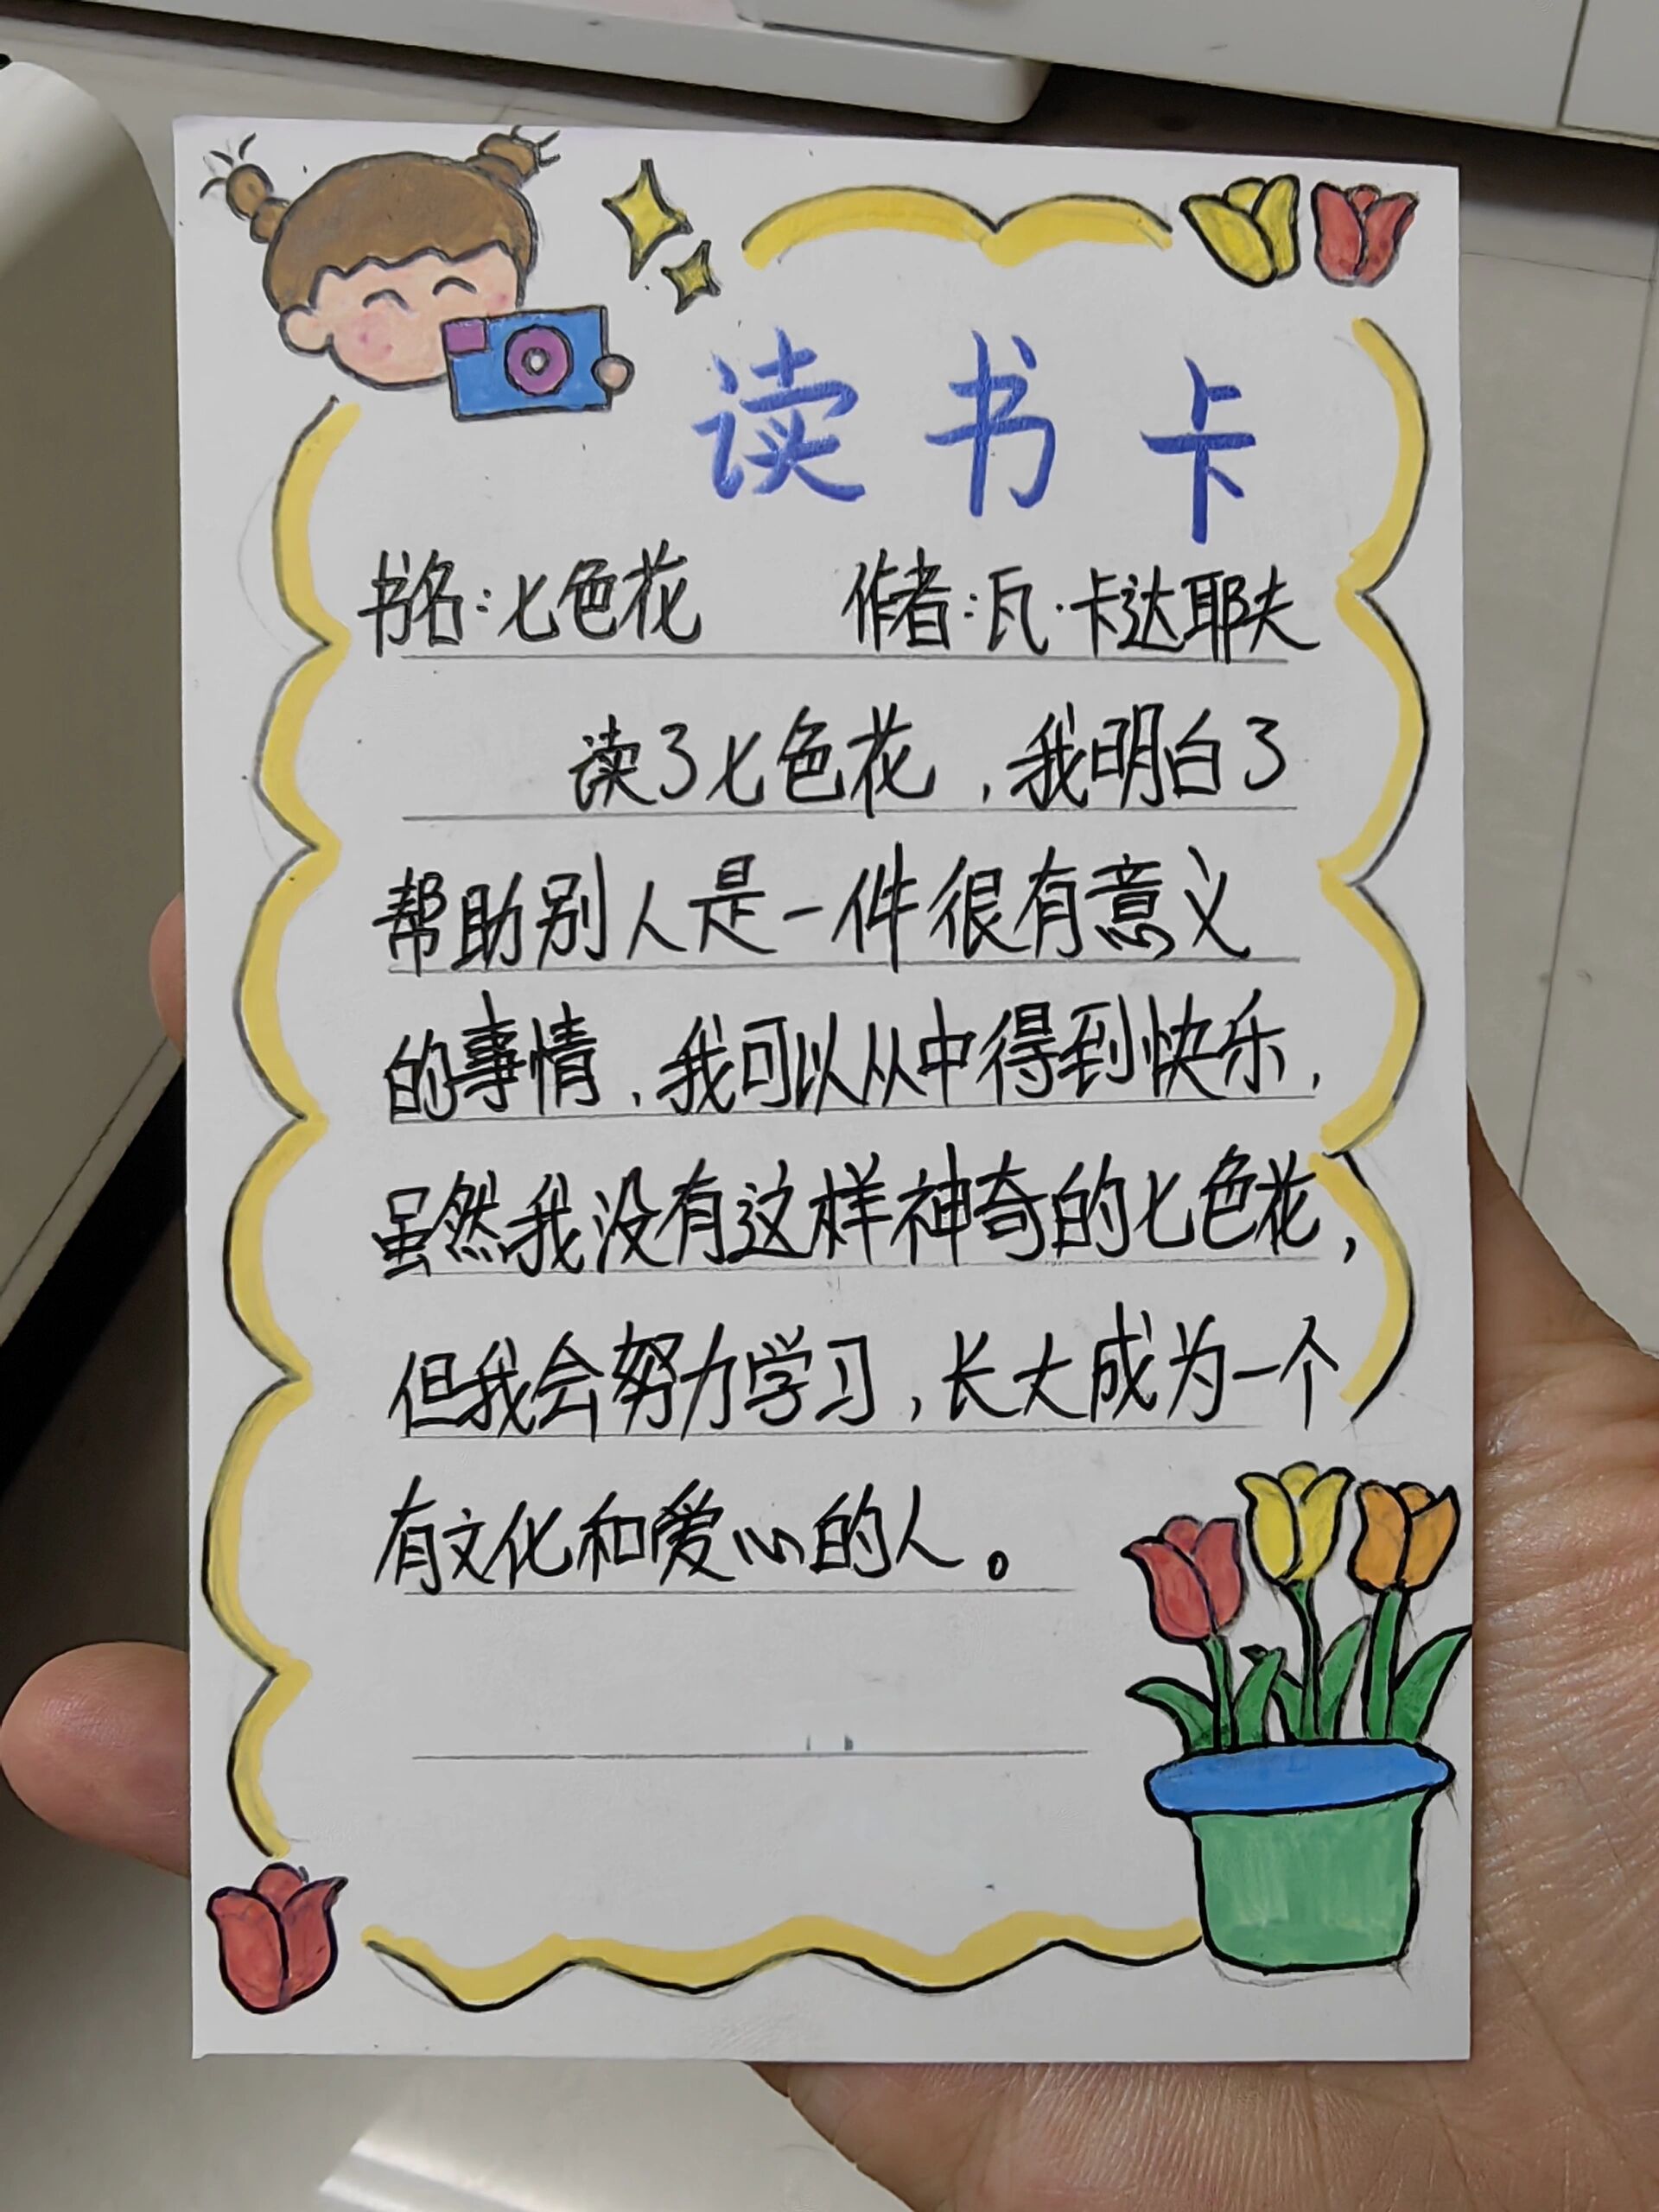 读书卡
书名:七色花 作者:瓦·卡达耶夫
读了七色花,我明白了
帮助别人是一件很有意义
的事情,我可以从中得到快乐,
虽然我没有这样神奇的七色花,
但我会努力学习,长大成为一个
有文化和爱心的人。